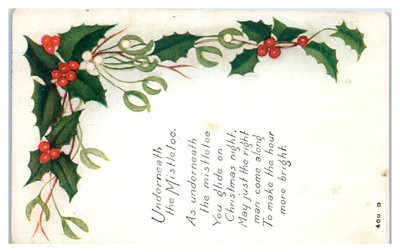 Underneath
the Mistletoe.
As underneath
the mistletoe
You glide on
Christmas night,
May just the right
man come along
To make the hour
more bright.
460 D